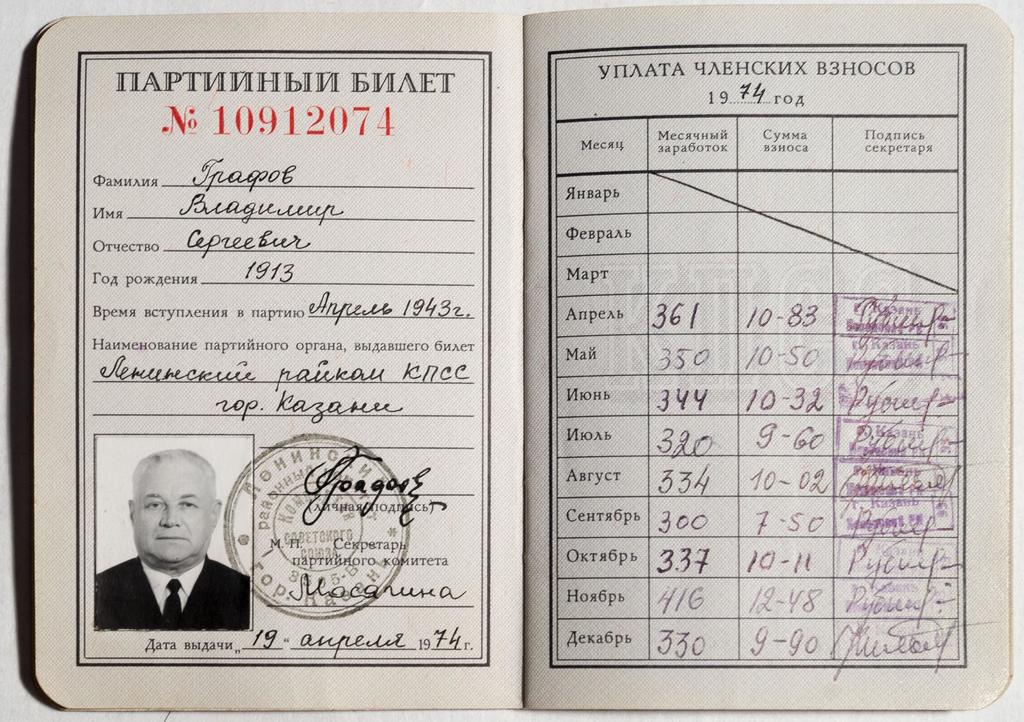 ПАРТИЙНЫЙ БИЛЕТ
№ 10912074
Фамилия Графов
Имя Владимир
Отчество Сергеевич
Год рождения 1913
Время вступления в партию Апрель 1943г.
Наименование партийного органа, выдавшего билет
Ленинский райком КПСС
гор. Казани
(личная подпись)
М. П. Секретарь
партийного комитета
Дата выдачи „19“ апреля 1974 г.
УПЛАТА ЧЛЕНСКИХ ВЗНОСОВ
1974 год
Месяц Месячный заработок Сумма взноса Подпись секретаря
Январь
Февраль
Март
Апрель 361 10-83 Казань
Май 350 10-50 г. Казань
Июнь 344 10-32
Июль 320 9-60 Казань
Август 334 10-02 Казань
Сентябрь 300 7-50 Казань
Октябрь 337 10-11
Ноябрь 416 12-48
Декабрь 330 9-90